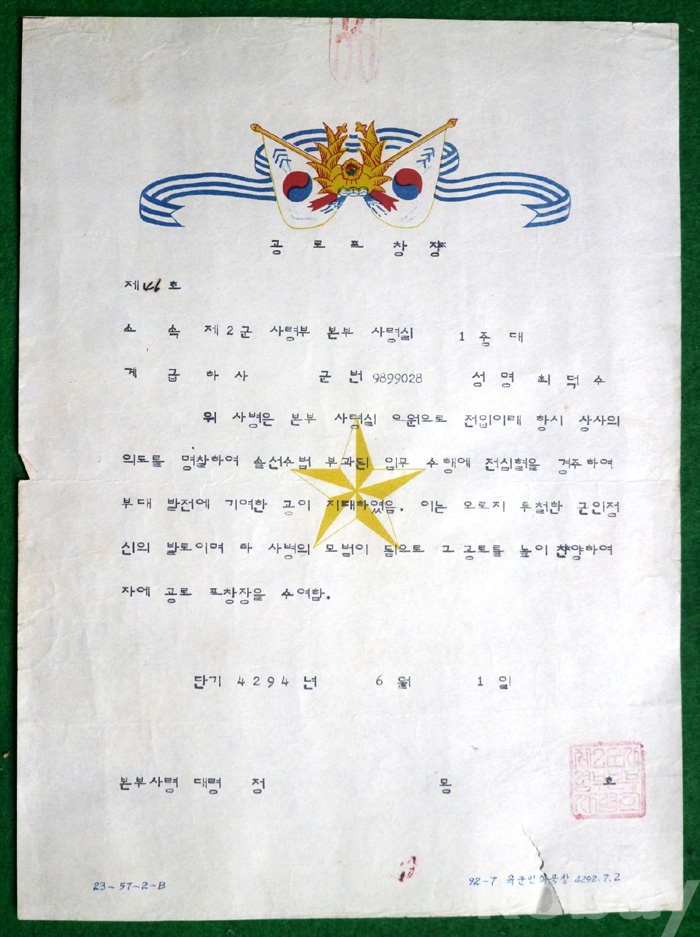 공로표창장
제46호
소속 제2군 사령부 본부 사령실 1중대
계급하사 군번 9899028 성명 최덕수
위 사병은 본부 사령실 요원으로 전입이래 항시 상사의
의도를 명찰하여 솔선수범 부과된 임무 수행에 전심혈을 경주하여
부대 발전에 기여한 공이 지대하였음. 이는 오로지 투철한 군인정
신의 발로이며 타 사병의 모범이 됨으로 그 공로를 높이 찬양하여
자에 공로 표창장을 수여함.
단기 4294년 6월 1일
본부사령 대령 정 몽 호
23-57-2-B
92-7 육군인쇄공창 4292.7.2
kobay